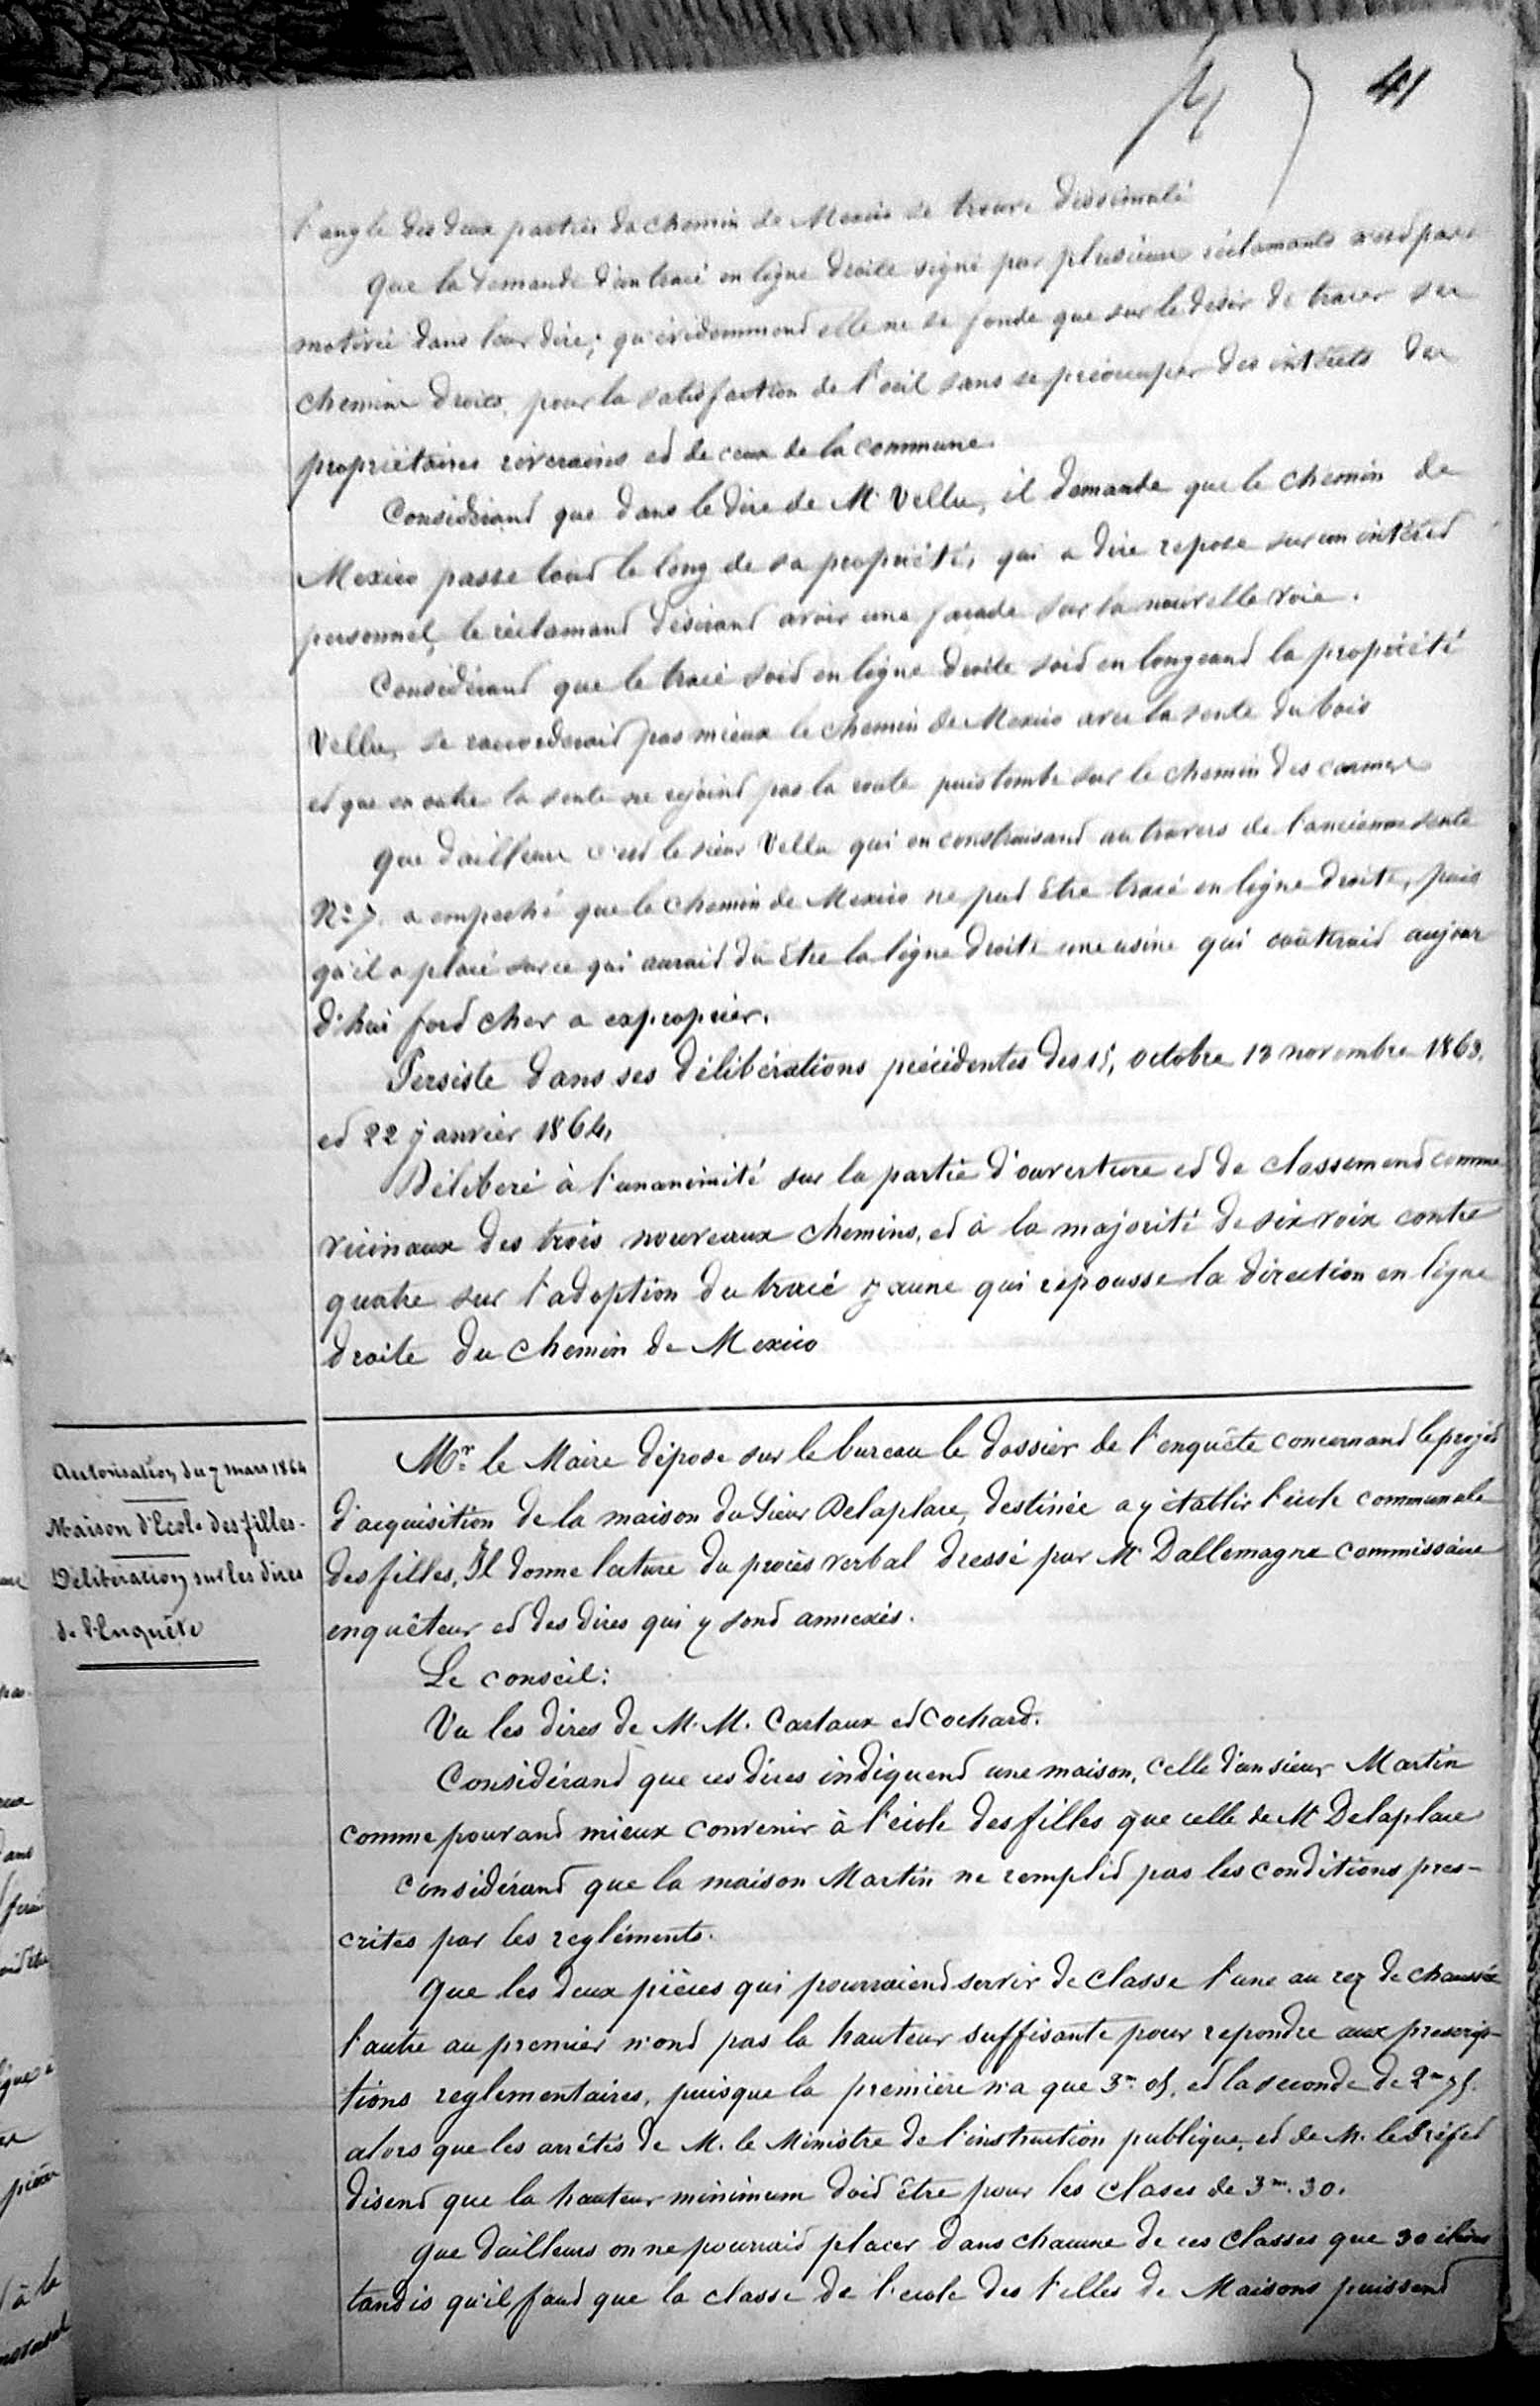 41
l'angle des deux parties du chemin de Mexico se trouve dissimulé
Que la demande d'un tracé en ligne droite signé par plusieurs réclamants n'est pas
motivée dans leur dire; qu'évidemment elle ne se fonde que sur le désir de tracer des
chemins droits, pour la satisfaction de l'oeil sans se préoccuper des intérêts des
propriétaires riverains et de ceux de la commune.
Considérant que dans le dire de Mr Vellu, il demande que le chemin de
Mexico passe tout le long de sa propriété, qui a dire repose sur un intérêt
personnel, le réclamant désirant avoir une façade sur la nouvelle voie.
Considérant que le tracé soit en ligne droite soit en longeant la propriété
Vellu, ne raccorderait pas mieux le chemin de Mexico avec la sente du bois
et que en outre la sente ne rejoint pas la route puis tombe sur le chemin des
Que d'ailleurs c'est le sieur Vellu qui en construisant au travers de l'ancienne sente
No 7. a empeché que le chemin de Mexico ne put être tracé en ligne droite, puis
qu'il a placé sur ce qui aurait dû être la ligne droite une usine qui coûterait aujour
d'hui fort cher a exproprier.
Persiste dans ses délibérations précédentes des 15, octobre 13 novembre 1863.
et 22 janvier 1864,
Délibéré à l'unanimité sur la partie d'ouverture et de classement comme
vicinaux des trois nouveaux chemins, et à la majorité de six voix contre
quatre sur l'adoption du tracé jaune qui repousse la direction en ligne
droite du chemin de Mexico
Autorisation du 7 mars 1864
Maison d'Ecole des filles.
Délibération sur les dires
de l'Enquête
Mr. le Maire dépose sur le bureau le dossier de l'enquête concernant le projet
d'acquisition de la maison du Sieur Delaplace, destinée a y établir l'école communale
des filles, Il donne lecture du procès verbal dressé par Mr Dallemagne commissaire
enquêteur et des dires qui y sont annexés.
Le conseil:
Vu les dires de M. M. Cartaux et Cochard.
Considérant que ces dires indiquent une maison, celle d'un sieur Martin
comme pouvant mieux convenir à l'école des filles que celle de Mr Delaplace
Considérant que la maison Martin ne remplit pas les conditions pres-
crites par les regléments.
Que les deux pièces qui pourraient servir de classe l'une au rez de chaussée
l'autre au premier n'ont pas la hauteur suffisante pour repondre aux prescrip-
tions reglementaires, puisque la première n'a que 3m 05, et la seconde de 2m 75.
alors que les arrêtés de M. le Ministre de l'instruction publique, et de M. le Préfet
disent que la hauteur minimum doit être pour les clases de 3m. 30.
Que dailleurs on ne pourrait placer dans chacune de ces classes que 30 élèves
tandis qu'il faut que la classe de l'ecole des filles de Maisons puissent